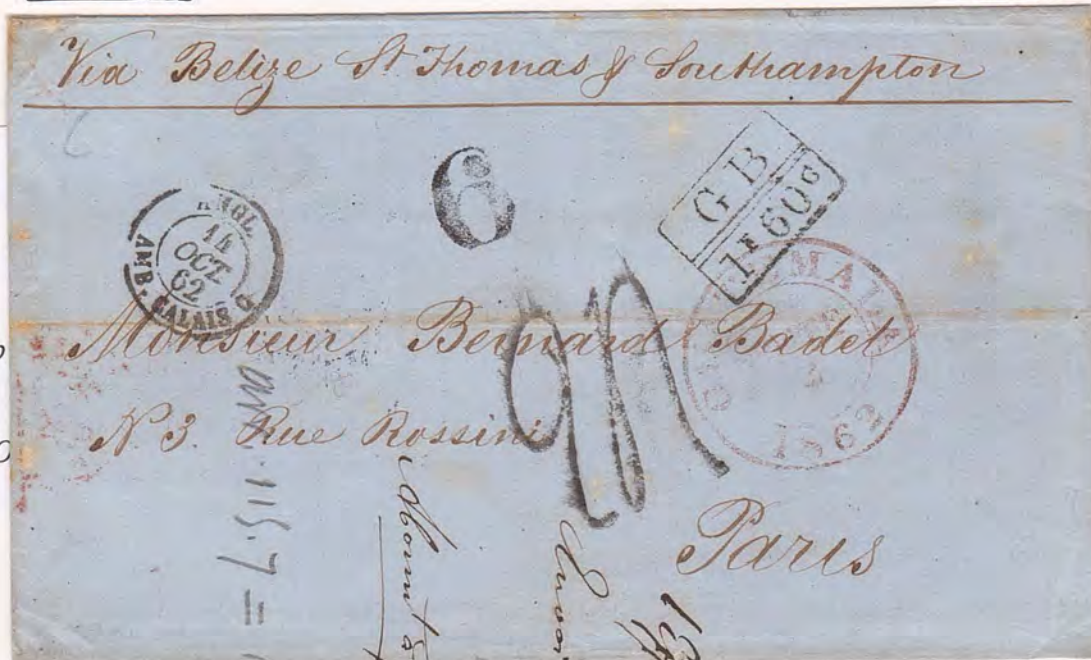 Via Belize St Thomas & Southampton
6
G B
1F60c
ANGL
14
OCT
62
AMB. CALAIS
GUATEMALA
1862
Monsieur Bernard Badet
N 3. Rue Rossini
Paris
115.7 =